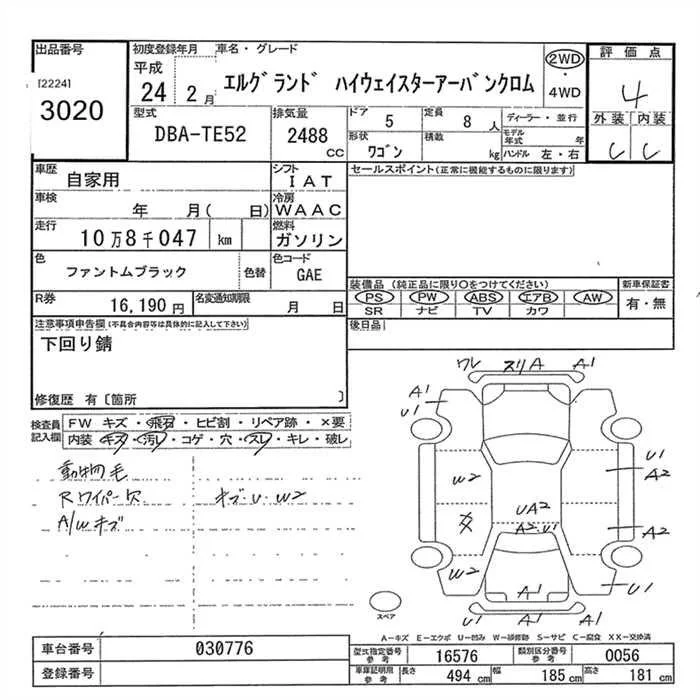 出品番号 初度登録年月 車名・グレード 評価点
[2224]
3020
平成
24 2月
エルグランド ハイウェイスターアーバンクロム
2WD
・
4WD
4
外装 内装
C C
型式 排気量 ドア 5 定員 8人 ディーラー・並行
DBA-TE52 2488 cc
形状 ワゴン 積載 kg モデル年式 年
ハンドル 左・右
車歴 自家用 シフト IAT
セールスポイント(正常に機能するものに限ります)
車検 年 月( 日) 冷房 WAAC
走行 10万8千047 km 燃料 ガソリン
色 ファントムブラック 色替 色コード GAE
装備品 (純正品に限り○をつけてください) 新車保証書
PS PW ABS エアB AW 有・無
SR ナビ TV カワ
R券 16,190円 名変通知期限 月 日
後日品
注意事項申告欄(不具合内容等は具体的に記入して下さい)
下回り錆
修復歴 有〔箇所 〕
検査員記入欄
FW キズ・飛石・ヒビ割・リペア跡・×要
内装 キズ・汚レ・コゲ・穴・スレ・キレ・破レ
動物毛
Rワイパー欠 キズ・U・W2
A/Wキズ
ワレ スリA A1
A1
U1
U1
A2
W2
UA2
A2・U1
A2
W2
A1
U1
U1 A1 A1
スペア
A-キズ E-エクボ U-凹ミ W-補修跡 S-サビ C-腐食 XX-交換済
車台番号 030776
登録番号
型式指定番号 参考 16576 類別区分番号 参考 0056
車庫証明用 参考 長さ 494 cm 幅 185 cm 高さ 181 cm